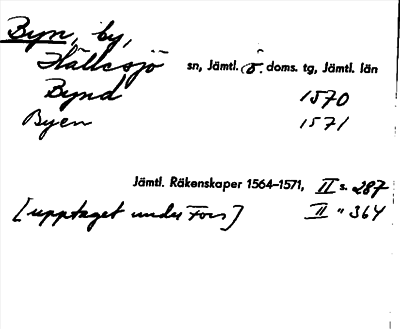 Byn, by,
Hällesjö sn, Jämtl. ö. doms. tg, Jämtl. län
Bynd 1570
Byen 1571
Jämtl. Räkenskaper 1564-1571, II s. 287
[upptaget under Fors] II " 364